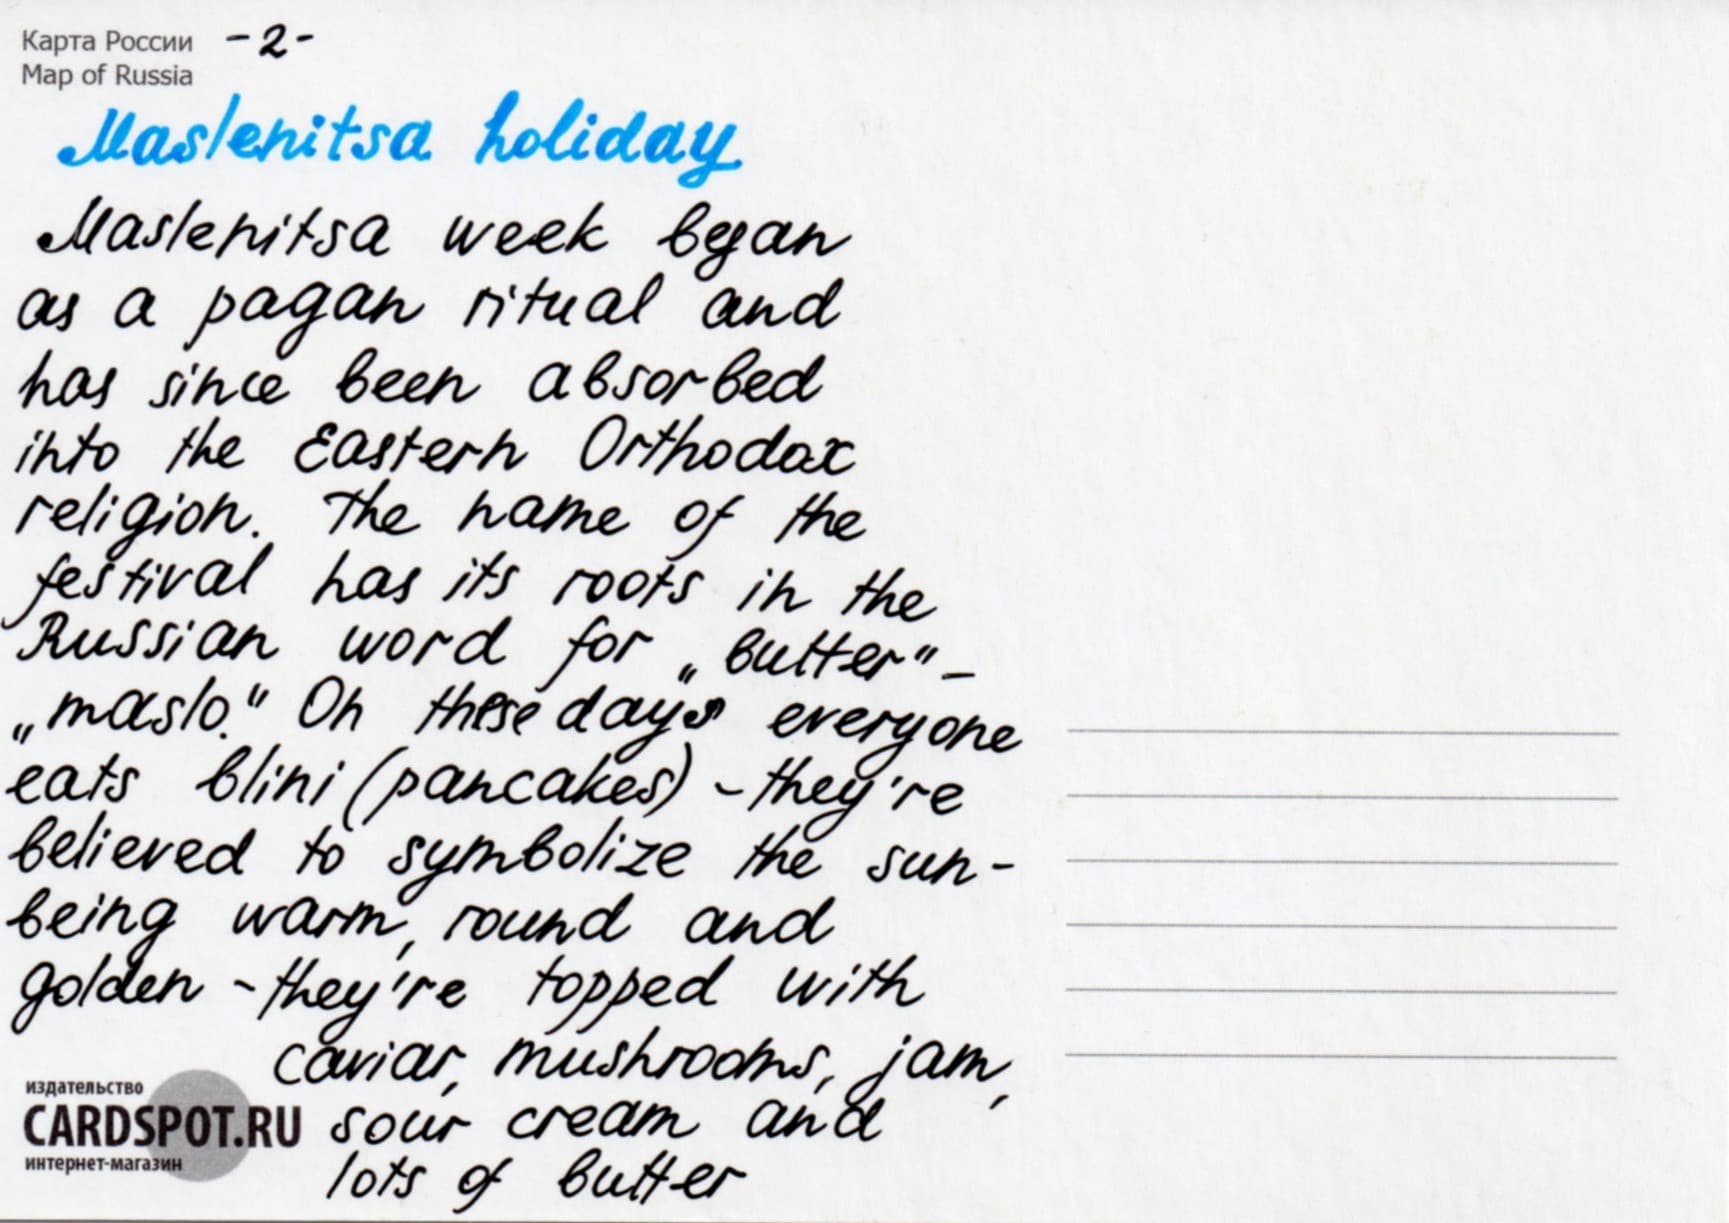 Карта России -2-
Map of Russia
Maslenitsa holiday
Maslenitsa week began
as a pagan ritual and
has since been absorbed
into the Eastern Orthodox
religion. The name of the
festival has its roots in the
Russian word for „butter“ –
„maslo.“ On these days everyone
eats blini (pancakes) - they're
believed to symbolize the sun -
being warm, round and
golden - they're topped with
caviar, mushrooms, jam,
sour cream and
lots of butter
издательство
CARDSPOT.RU
интернет-магазин